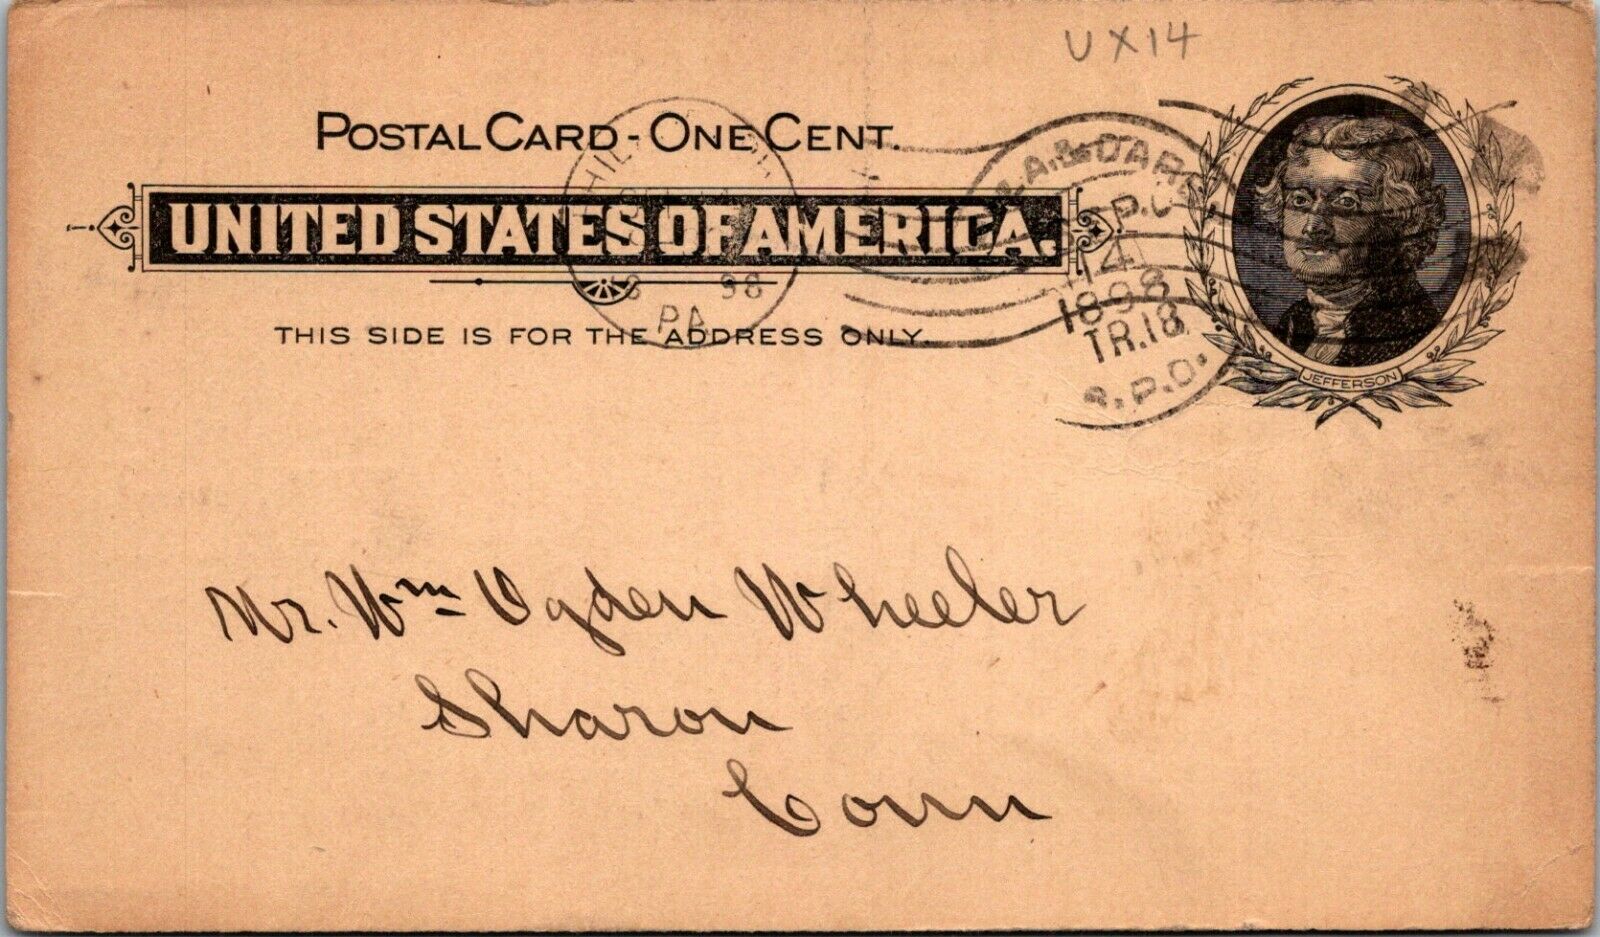 UX14
POSTAL CARD - ONE CENT.
UNITED STATES OF AMERICA.
THIS SIDE IS FOR THE ADDRESS ONLY.
98
PA
14
1898
TR.18
R.P.O.
JEFFERSON
Mr. Wm Ogden Wheeler
Sharon
Conn